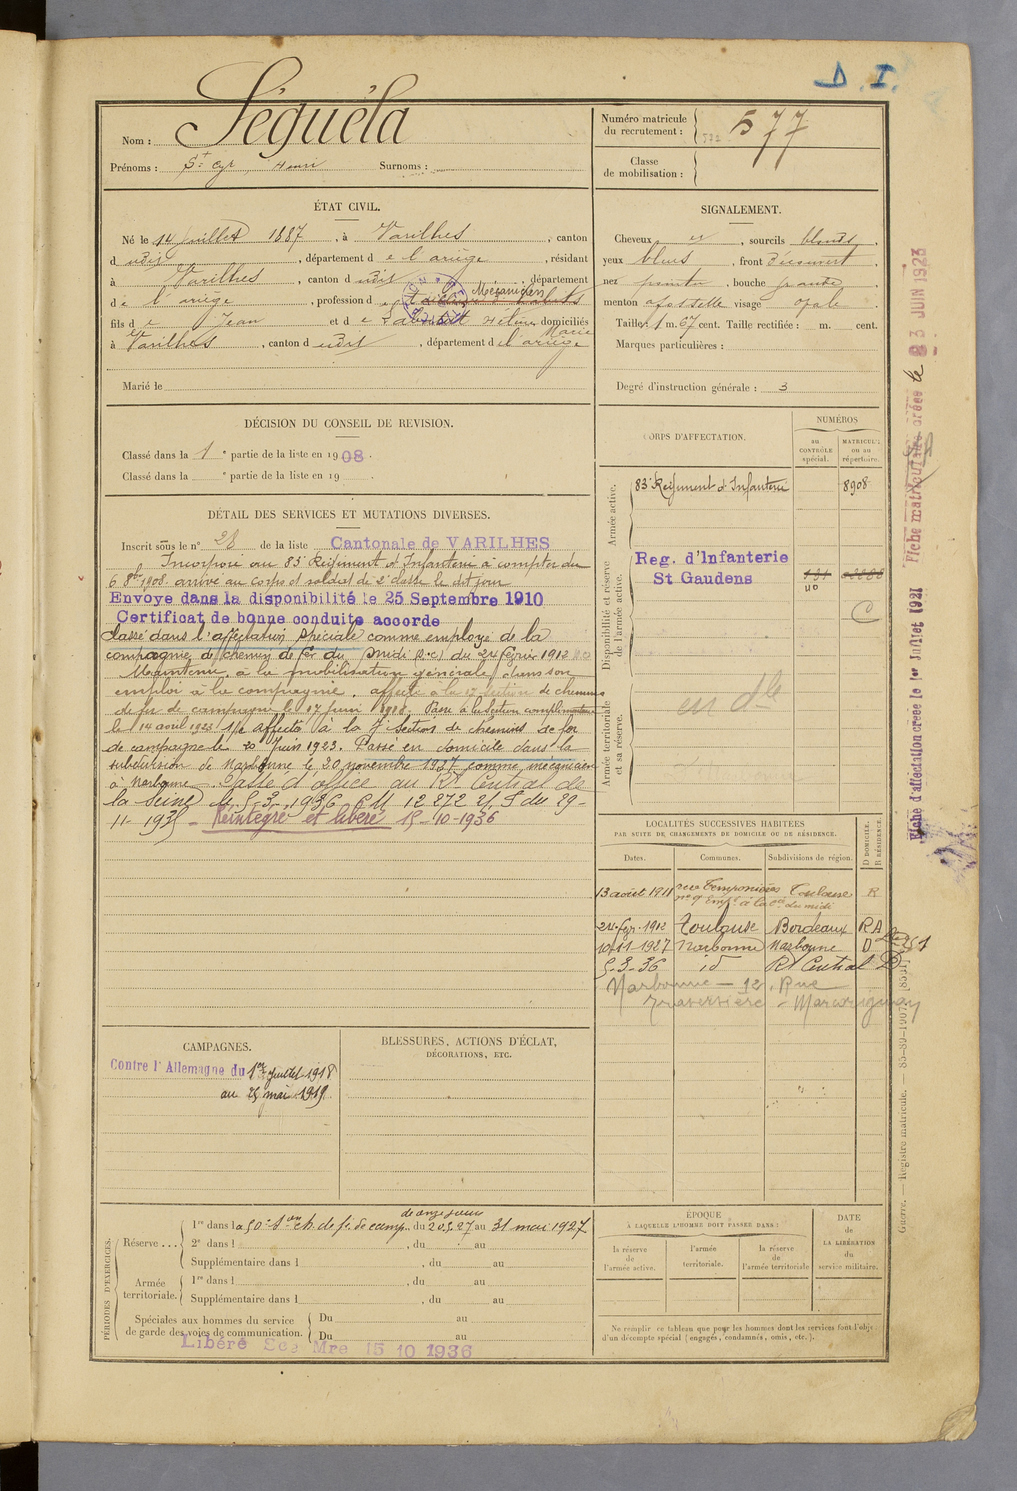 D. I.
Nom : Séguéla
Prénoms : St Cyr, Henri Surnoms :
Numéro matricule
du recrutement : 577
Classe
de mobilisation :
ÉTAT CIVIL.
Né le 14 Juillet 1887, à Varilhes, canton
d udit, département de l'ariège, résidant
à Varilhes, canton d udit, département
de l'ariège, profession de Mécanicien
fils de Jean et de Hélène domiciliés
Marie
à Varilhes, canton d udit, département de l'ariège
Marié le
SIGNALEMENT.
Cheveux et, sourcils blonds,
yeux bleus, front Découvert,
nez pointu, bouche grande,
menton à fossette visage ovale.
Taille 1 m. 67 cent. Taille rectifiée : m. cent.
Marques particulières :
Degré d'instruction générale : 3
DÉCISION DU CONSEIL DE REVISION.
Classé dans la 1e partie de la liste en 1908.
Classé dans la e partie de la liste en 19 .
DÉTAIL DES SERVICES ET MUTATIONS DIVERSES.
Inscrit sous le n° 28 de la liste Cantonale de VARILHES
Incorporé au 83e Régiment d'Infanterie à compter du
6 8bre 1908. arrivé au corps et soldat de 2e classe le dit jour
Envoyé dans la disponibilité le 25 Septembre 1910
Certificat de bonne conduite accordé
Classé dans l'affectation spéciale comme employé de la
compagnie de chemin de fer du Midi (R.C) du 24 février 1912
Maintenu à la mobilisation générale dans son
emploi à la compagnie. affecté a la section de chemins
de fer de campagne le 17 Juin 1918. Passé à la Section complémentaire
le 14 avril 1923 affecté à la 7e Section de chemins de fer
de campagne le 20 Juin 1923. Passé en domicile dans la
subdivision de Narbonne le 20 novembre 1927 comme mécanicien
à Narbonne. Passé d'office au Rt Central de
la Seine le 5-3-1936 C M 12272 du 29-
11-1935 - Réintégré et libéré 15-10-1936
CORPS D'AFFECTATION.
NUMÉROS
au
CONTRÔLE
spécial.
MATRICULE
ou au
répertoire.
Armée active.
83e Régiment d'Infanterie 8908
Disponibilité et réserve
de l'armée active.
Reg. d'Infanterie
St Gaudens
C
Armée territoriale
et sa réserve.
en dle
LOCALITÉS SUCCESSIVES HABITÉES
PAR SUITE DE CHANGEMENTS DE DOMICILE OU DE RÉSIDENCE.
D DOMICILE.
R RÉSIDENCE.
Dates. Communes. Subdivisions de région.
13 août 1911 rue Temponières Toulouse R
n° 9 Empé à la Cie du midi
24 fév. 1912 Toulouse Bordeaux RA
10-11-1927 Narbonne Narbonne D
5-3-36 id Rt Central D
Narbonne - 12, Rue
Traversière -
CAMPAGNES.
Contre l'Allemagne du 1er Juillet 1918
au 25 mai 1919.
BLESSURES, ACTIONS D'ÉCLAT,
DÉCORATIONS, ETC.
PÉRIODES D'EXERCICES.
de onze jours
Réserve ... 1re dans la 50e Son ch. de f. de camp. du 20.5.27 au 31 mai 1927
2e dans l , du au
Supplémentaire dans l , du au
Armée
territoriale. 1re dans l , du au
Supplémentaire dans l , du au
Spéciales aux hommes du service
de garde des voies de communication. Du au
Du au
Libéré Sce Mre 15 10 1936
ÉPOQUE
À LAQUELLE L'HOMME DOIT PASSER DANS :
la réserve
de
l'armée active.
l'armée
territoriale.
la réserve
de
l'armée territoriale
DATE
de
LA LIBÉRATION
du
service militaire.
Ne remplir ce tableau que pour les hommes dont les services font l'objet
d'un décompte spécial (engagés, condamnés, omis, etc.).
Fiche d'affectation créée le 1er Juillet 1921
Fiche matriculaire créée le 23 JUIN 1923
Guerre. — Registre matricule. — 85-89-1907.